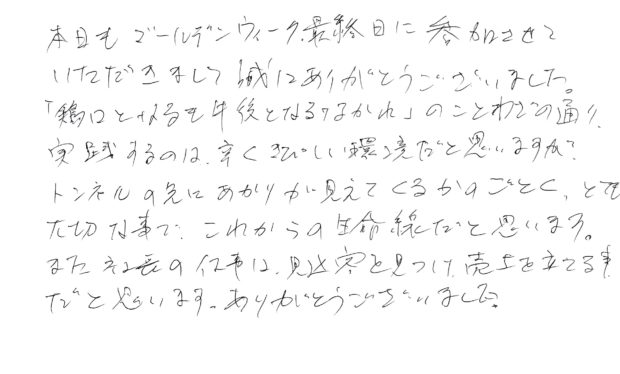 本日もゴールデンウィーク、最終日に参加させて
いただきまして誠にありがとうございました。
「鶏口となるも牛後となるなかれ」のことわざの通り、
実践するのは、辛くきびしい環境だと思いますが、
トンネルの先にあかりが見えてくるかのごとく、とても
大切な事で、これからの生命線だと思います。
また社長の仕事は、見込客を見つけ、売上を立てる事
だと思います。ありがとうございました。